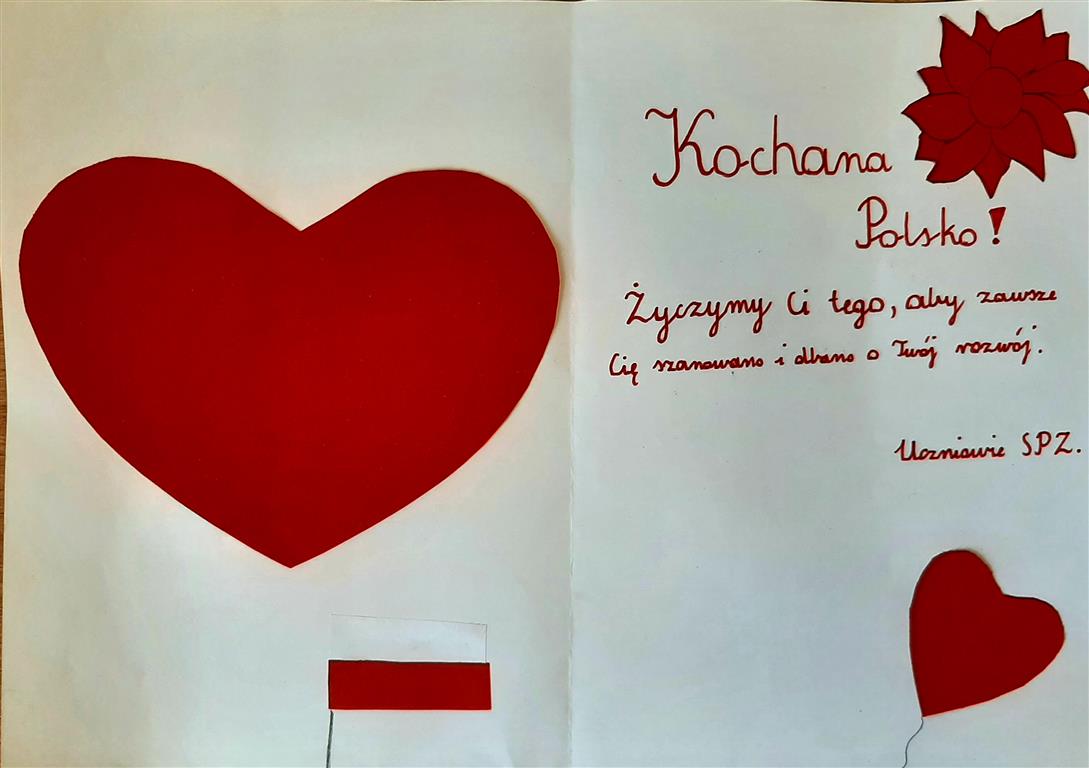 Kochana
Polsko!
Życzymy Ci tego, aby zawsze
Cię szanowano i dbano o Twój rozwój.
Uczniowie SPZ.